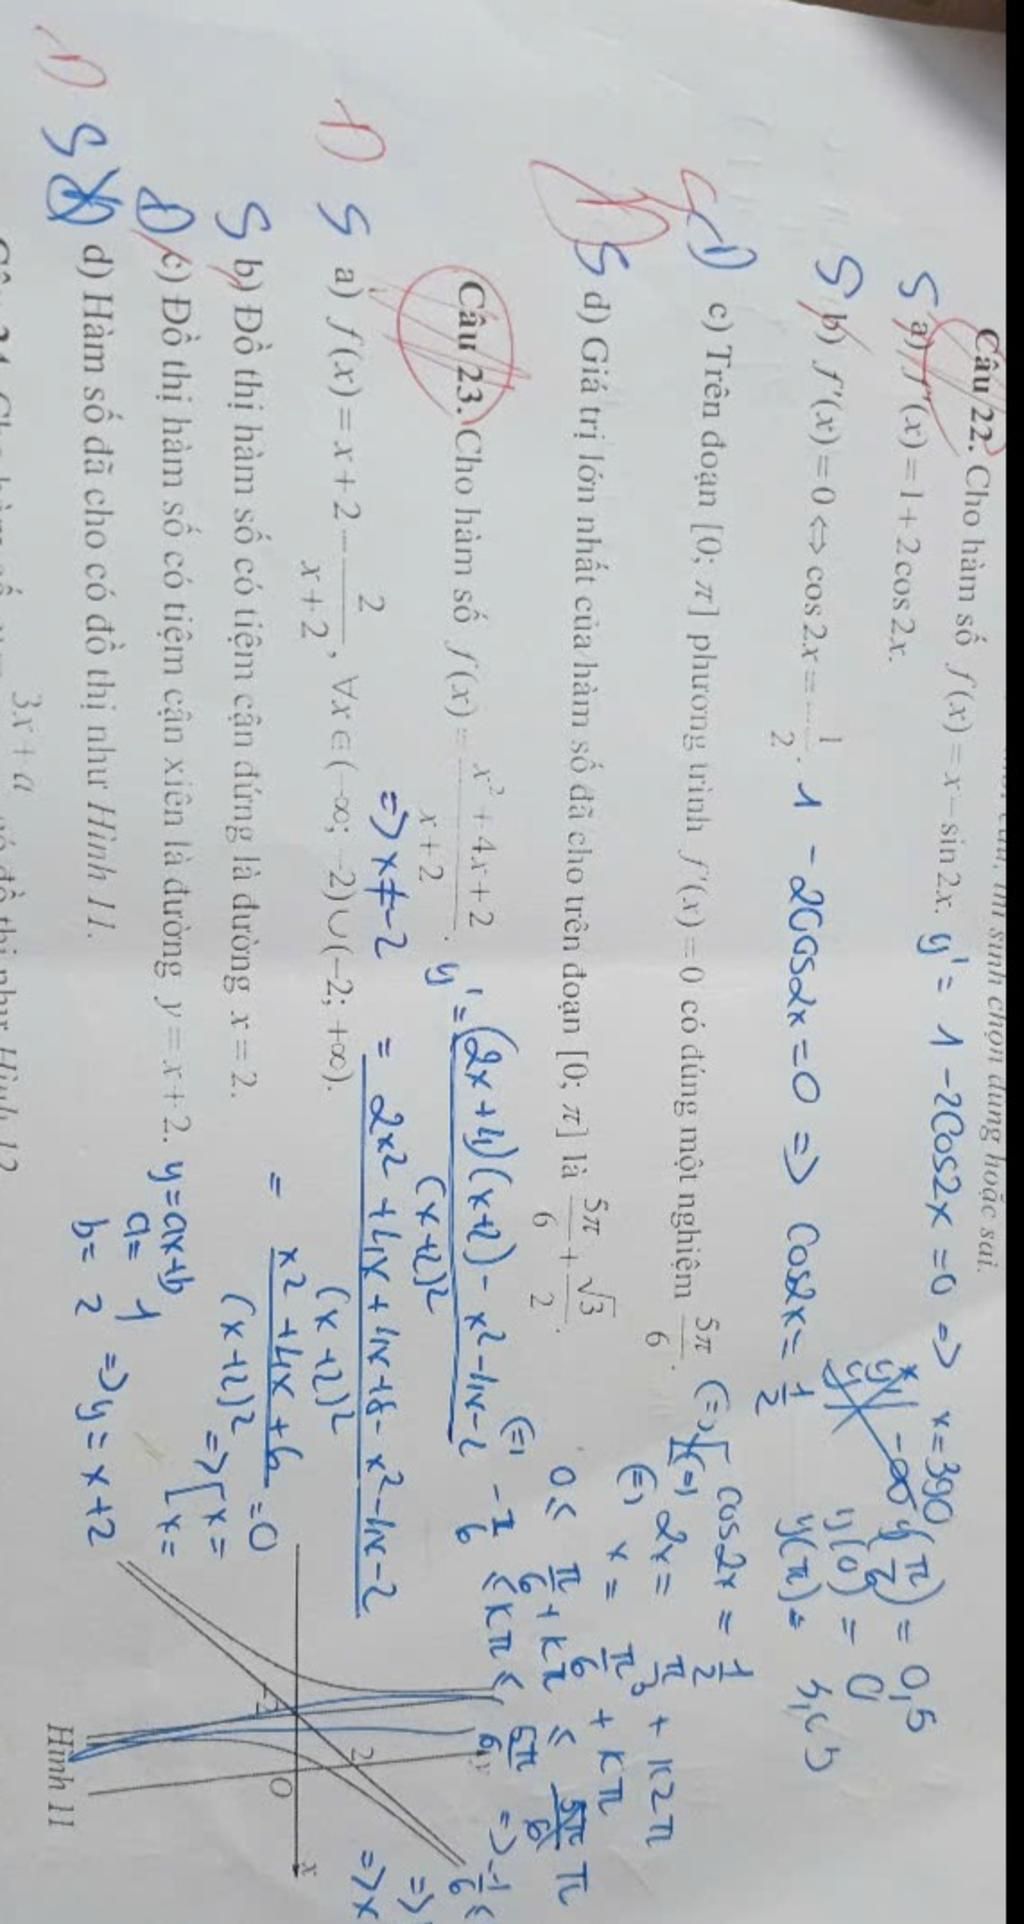 sinh chọn đúng hoặc sai.
Câu 22. Cho hàm số f(x) = x − sin 2x. y' = 1 − 2cos2x = 0 => x = 390
S a) f'(x) = 1 + 2cos 2x.
S b) f'(x) = 0 ⇔ cos 2x = −1/2. 1 − 2cos2x = 0 => cos2x = 1/2
y(π/6) = 0,5
y(0) = 0
y(π) =
Đ c) Trên đoạn [0; π] phương trình f'(x) = 0 có đúng một nghiệm 5π/6.
cos2x = 1/2
2x = π/3 + k2π
x = π/6 + kπ
S d) Giá trị lớn nhất của hàm số đã cho trên đoạn [0; π] là 5π/6 + √3/2.
0 ≤ π/6 + kπ ≤ π
−1/6 ≤ kπ ≤ 5π/6
Câu 23. Cho hàm số f(x) = (x² + 4x + 2)/(x + 2). y' = ((2x+4)(x+2) − x² − 4x − 2)/(x+2)²
=> x ≠ −2 = (2x² + 4x + 4x + 8 − x² − 4x − 2)/(x+2)²
S a) f(x) = x + 2 − 2/(x + 2), ∀x ∈ (−∞; −2) ∪ (−2; +∞).
= (x² + 4x + 6)/(x+2)² = 0
=> [x =
x =
S b) Đồ thị hàm số có tiệm cận đứng là đường x = 2.
Đ c) Đồ thị hàm số có tiệm cận xiên là đường y = x + 2. y = ax+b
a = 1
b = 2 => y = x + 2
S d) Hàm số đã cho có đồ thị như Hình 11.
y
2
O
x
Hình 11
3x + a
có đồ thị như Hình 12